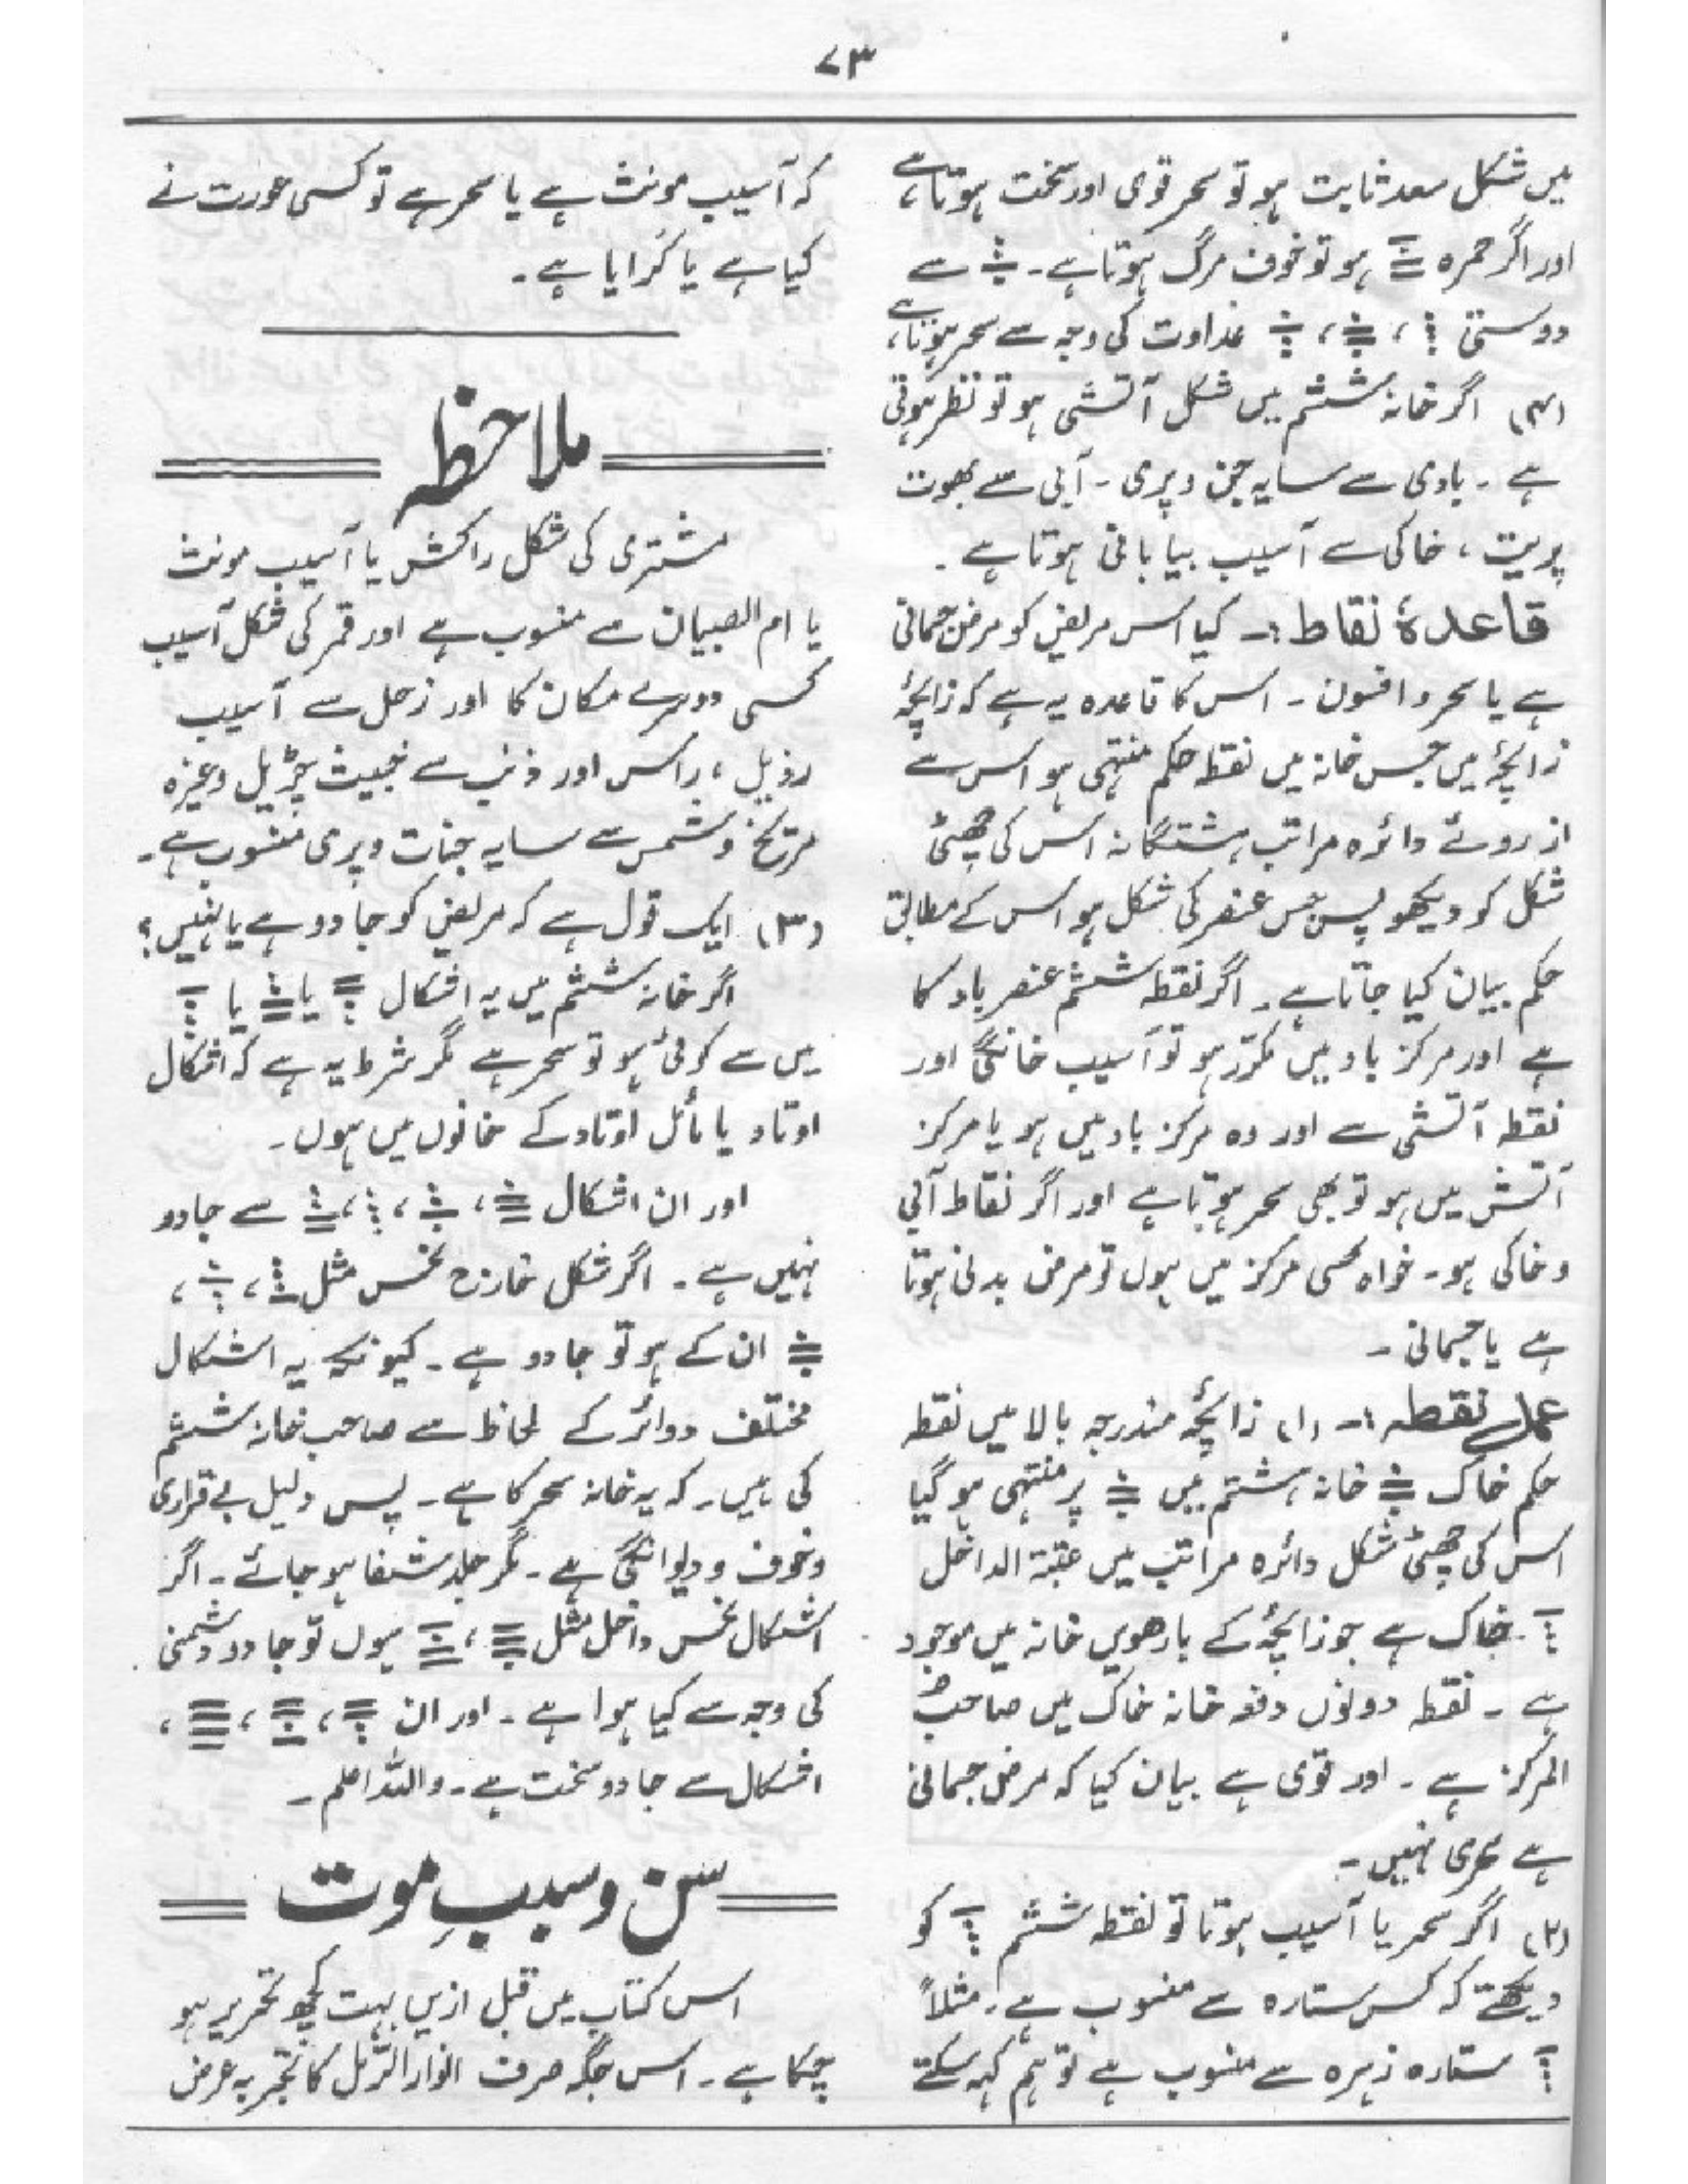 ۷۳
میں شکل سعد ثابت ہو تو سحر قوی اور سخت ہوتا ہے،
اور اگر حمرہ ہو تو خوف مرگ ہوتا ہے۔ سے
دوستی ، ، عداوت کی وجہ سے سحر ہوتا ہے،
(۴) اگر خانہ ششم میں شکل آتشی ہو تو نظر ہوتی
ہے ۔ بادی سے سایہ جن و پری ۔ آبی سے بھوت
پریت ، خاکی سے آسیب بیابانی ہوتا ہے ۔
قاعدۂ نقاط :۔ کیا اس مریض کو مرض جسمانی
ہے یا سحر و افسون ۔ اس کا قاعدہ یہ ہے کہ زائچۂ
زائچۂ میں جس خانہ میں نقطہ حکم منتہی ہو اس سے
از روئے دائرہ مراتب ہشتگانہ اس کی چھٹی
شکل کو دیکھو پس جس عنصر کی شکل ہو اس کے مطابق
حکم بیان کیا جاتا ہے ۔ اگر نقطہ ششم عنصر باد کا
ہے اور مرکز باد میں مکرر ہو تو آسیب خانگی اور
نقطہ آتشی سے اور وہ مرکز باد میں ہو یا مرکز
آتش میں ہو تو بھی سحر ہوتا ہے اور اگر نقاط آبی
و خاکی ہو۔ خواہ کسی مرکز میں ہوں تو مرض بدنی ہوتا
ہے یا جسمانی ۔
عمل نقطہ :۔ (۱) زائچۂ مندرجہ بالا میں نقطہ
حکم خاک خانہ ہشتم میں پر منتہی ہو گیا
اس کی چھٹی شکل دائرہ مراتب میں عتبۃ الداخل
خاک ہے جو زائچۂ کے بارھویں خانہ میں موجود
ہے ۔ نقطہ دونوں دفعہ خانہ خاک میں صاحب
المرکز ہے ۔ اور قوی ہے بیان کیا کہ مرض جسمانی
ہے سحری نہیں ۔
(۲) اگر سحر یا آسیب ہوتا تو نقطہ ششم کو
دیکھتے کہ کس ستارہ سے منسوب ہے۔ مثلاً
ستارہ زہرہ سے منسوب ہے تو ہم کہہ سکتے
کہ آسیب مونث ہے یا سحر ہے تو کسی عورت نے
کیا ہے یا کرایا ہے ۔
ملاحظہ
مشتری کی شکل راکشس یا آسیب مونث
یا ام الصبیان سے منسوب ہے اور قمر کی شکل آسیب
کسی دوسرے مکان کا اور زحل سے آسیب
رذیل ، راکس اور ذنب سے خبیث چڑیل وغیرہ
مریخ و شمس سے سایہ جنات و پری منسوب ہے۔
(۳) ایک قول ہے کہ مریض کو جادو ہے یا نہیں؟
اگر خانہ ششم میں یہ اشکال یا یا
میں سے کوئی ہو تو سحر ہے مگر شرط یہ ہے کہ اشکال
اوتاد یا مائل اوتاد کے خانوں میں ہوں۔
اور ان اشکال ، ، ، سے جادو
نہیں ہے ۔ اگر شکل خارج نحس مثل ، ،
ان کے ہو تو جادو ہے ۔ کیونکہ یہ اشکال
مختلف دوائر کے لحاظ سے صاحب خانہ ششم
کی ہیں ۔ کہ یہ خانہ سحر کا ہے ۔ پس دلیل بے قراری
و خوف و دیوانگی ہے ۔ مگر جلد شفا ہو جائے ۔ اگر
اشکال نحس داخل مثل ، ہوں تو جادو دشمنی
کی وجہ سے کیا ہوا ہے ۔ اور ان ، ، ،
اشکال سے جادو سخت ہے ۔ واللہ اعلم ۔
سن و سببِ موت
اس کتاب میں قبل ازیں بہت کچھ تحریر ہو
چکا ہے ۔ اس جگہ صرف انوار الرمل کا تجربہ عرض